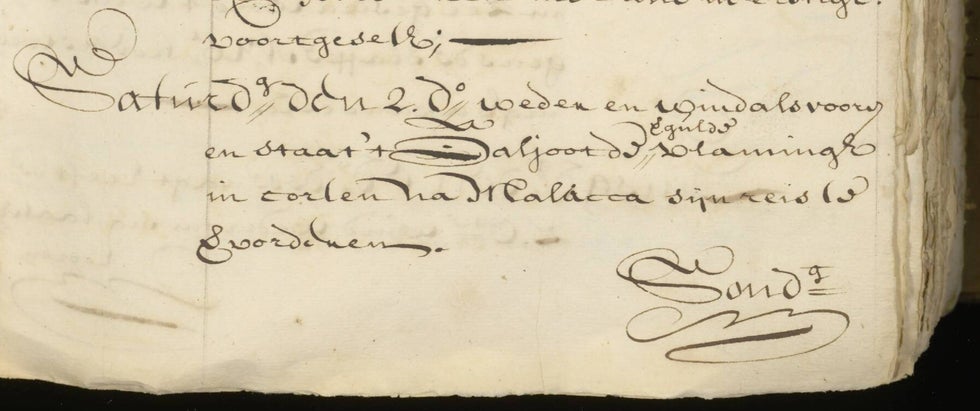 voortgeseilt;
Saturdg„ den 2„ do weder en wind als voorn
en staat 't galjoot de „ vergulde vlamingh
in corten na Mallacca sijn reis te
vorderen.
Sondg